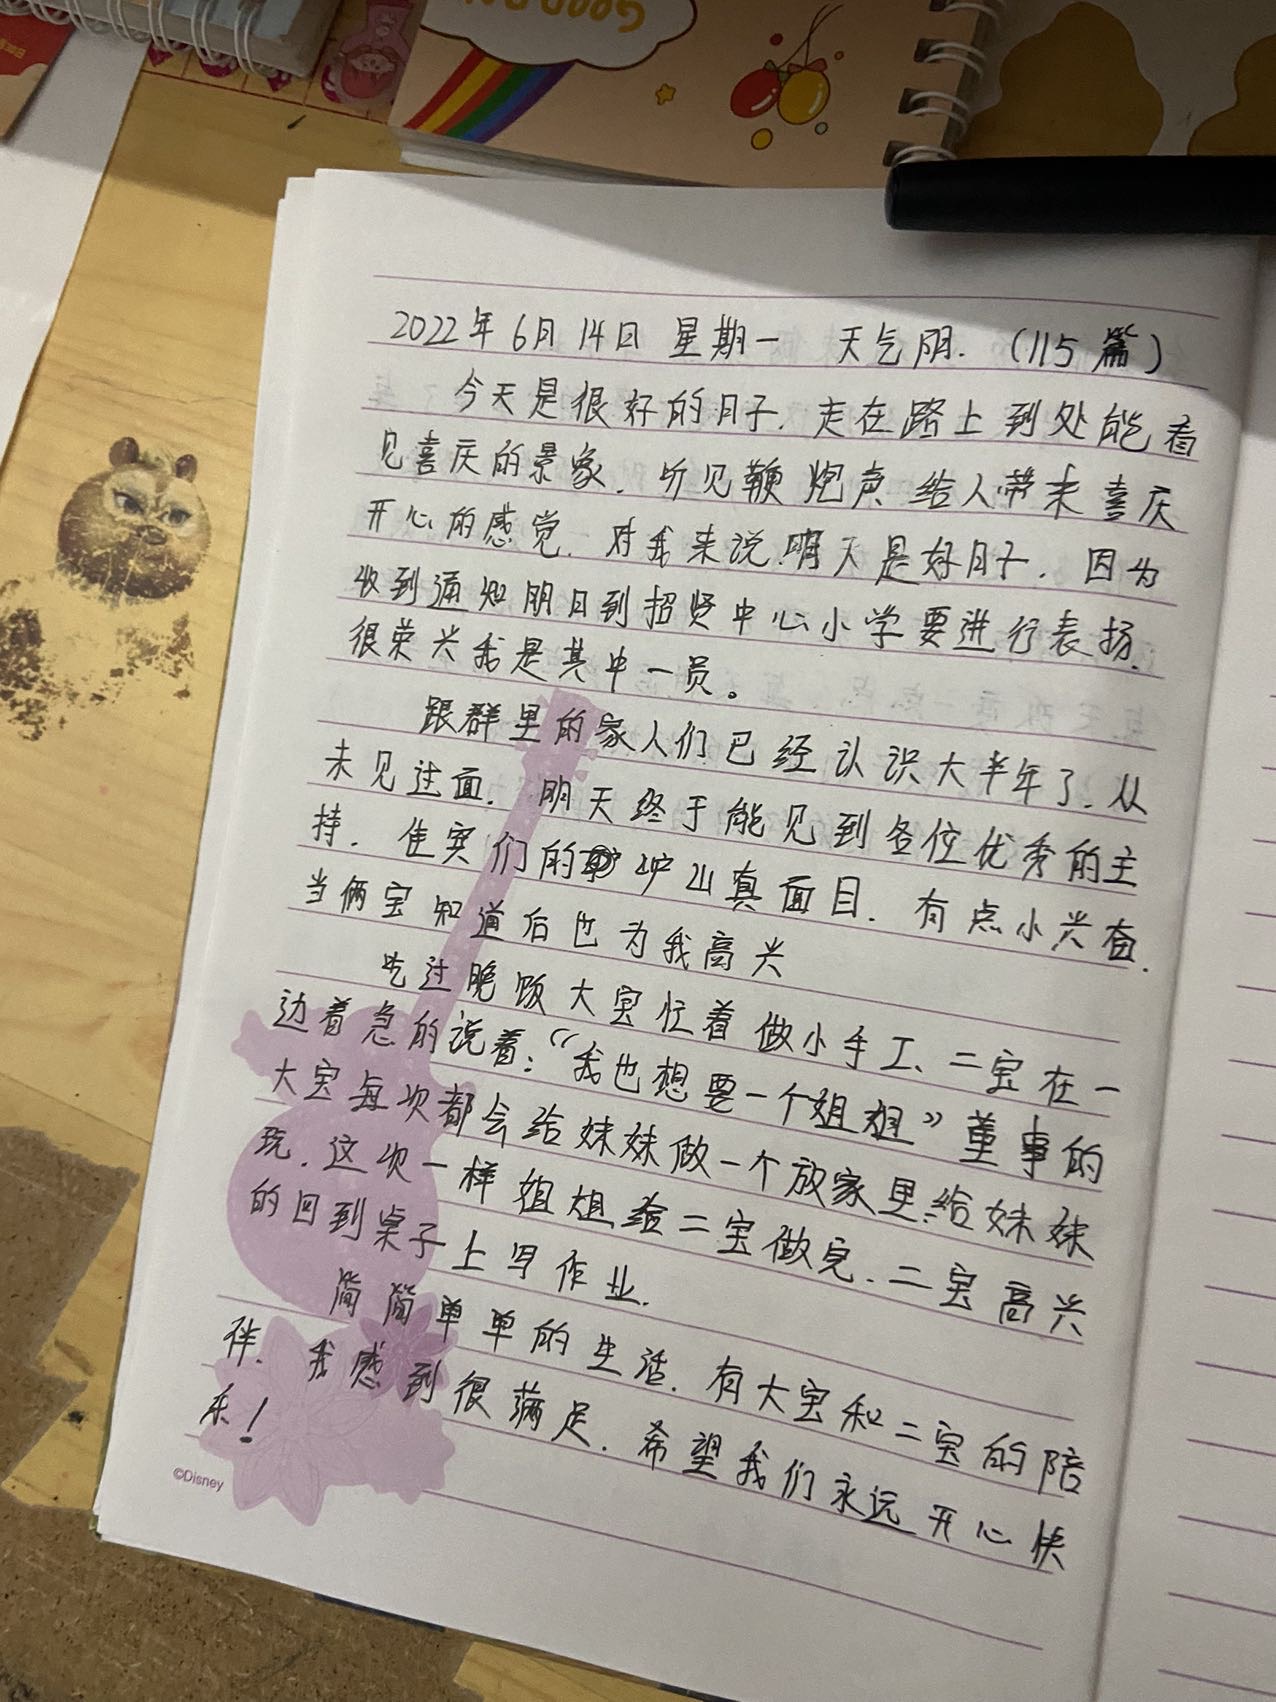 GOOD
2022年6月14日 星期一 天气阴.(115篇)
今天是很好的日子.走在路上到处能看
见喜庆的景象.听见鞭炮声给人带来喜庆
开心的感觉.对我来说.明天是好日子.因为
收到通知明日到招贤中心小学要进行表扬.
很荣兴我是其中一员。
跟群里的家人们已经认识大半年了.从
未见过面.明天终于能见到各位优秀的主
持.佳宾们的庐山真面目.有点小兴奋.
当俩宝知道后也为我高兴
吃过晚饭大宝忙着做小手工、二宝在一
边着急的说着:“我也想要一个姐姐”董事的
大宝每次都会给妹妹做一个放家里.给妹妹
玩.这次一样姐姐给二宝做完.二宝高兴
的回到桌子上写作业.
简简单单的生活.有大宝和二宝的陪
伴.我感到很满足.希望我们永远开心快
乐!
©Disney